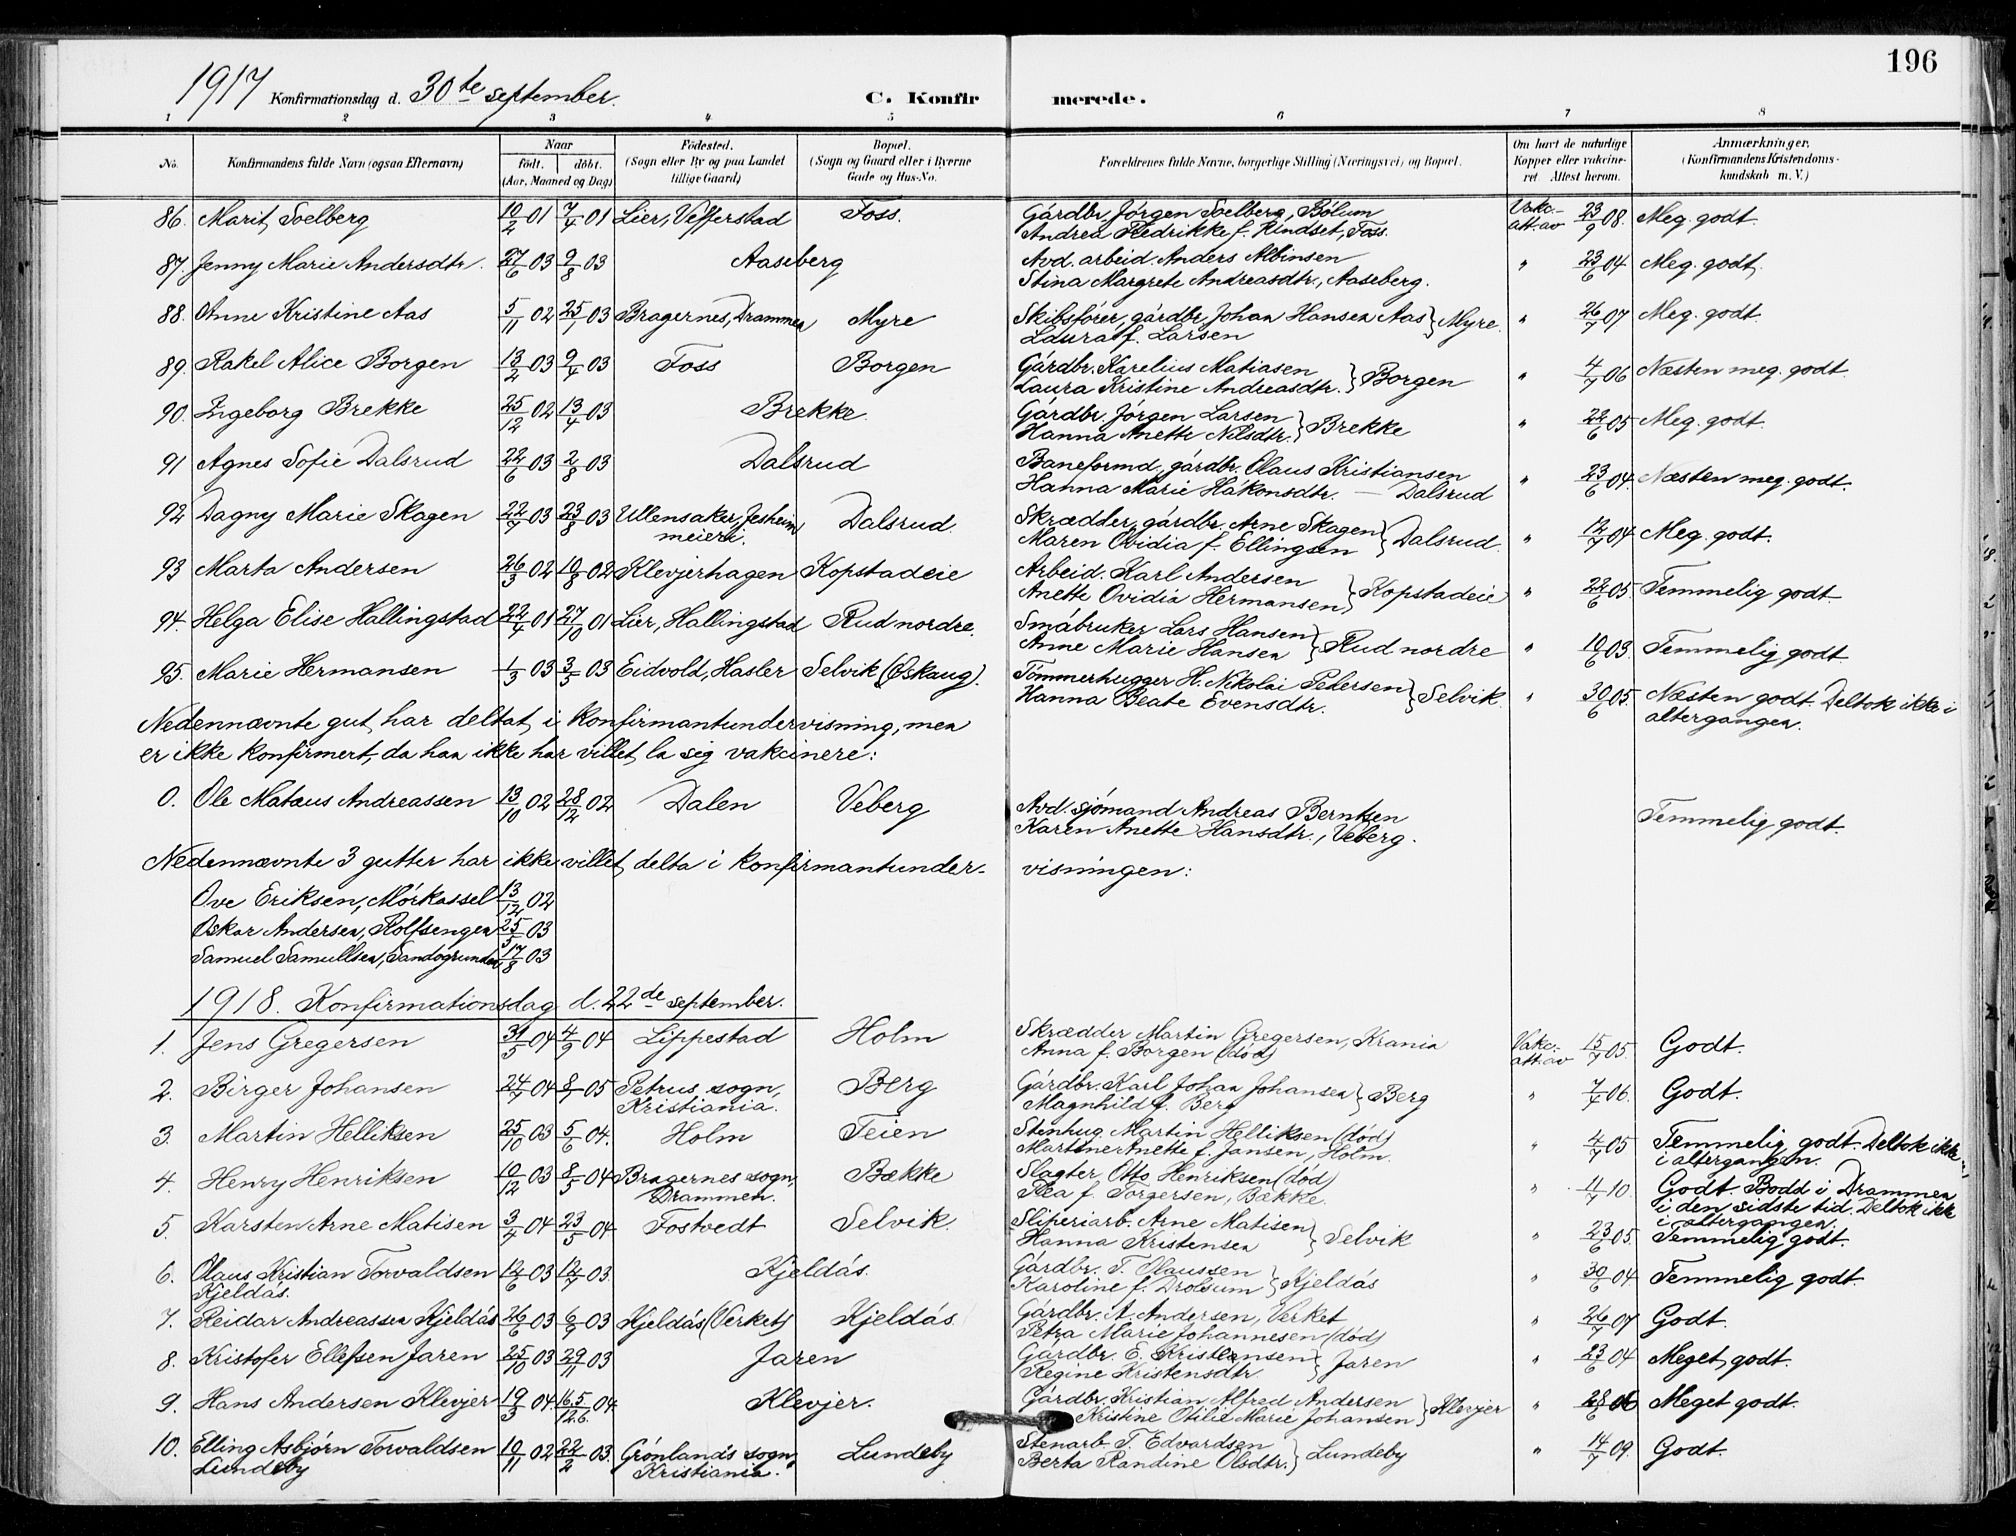 196
1917 Konfirmationsdag d. 30te september. C. Konfirmerede.
1 2 3 4 5 6 7 8
No. Konfirmandens fulde Navn (ogsaa Efternavn) Naar födt. döbt. (Aar, Maaned og Dag) Födested. (Sogn eller By og paa Landet tillige Gaard) Bopæl. (Sogn og Gaard eller i Byerne Gade og Hus-No. Forældrenes fulde Navne, borgerlige Stilling (Næringsvei) og Bopæl. Om havt de naturlige Kopper eller vakcineret Attest herom. Anmærkninger. (Konfirmandens Kristendomskundskab m. V.)
86. Marit Soelberg 10/2 01 7/4 01 Lier, Vefferstad Foss. Gårdbr. Jörgen Soelberg, Bölum Vakc.- att. av 23/9 08. Meg. godt.
Andrea Fredrikke f. Rindset, Foss.
87. Jenny Marie Andersdtr. 27/6 03 9/8 03 Aaseberg Avd. arbeid. Anders Albinsen " 23/6 04 Meg. godt.
Stina Margrete Andreasdtr., Aaseberg.
88. Anne Kristine Aas 5/11 02 25/1 03 Bragernes, Drammen Myre Skibsförer, gårdbr. Johan Hansen Aas } Myre. " 26/7 07 Meg. godt.
Laura f. Larsen
89. Rakel Alice Borgen 13/2 03 9/4 03 Foss Borgen Gårdbr. Karelius Matiasen } Borgen " 4/7 06 Næsten meg. godt.
Laura Kristine Andreasdtr.
90. Ingeborg Brekke 25/12 02 13/4 03 Brekke. Gårdbr. Jörgen Larsen } Brekke " 22/6 05 Meg. godt.
Hanna Anette Nilsdtr.
91 Agnes Sofie Dalsrud 22/6 03 2/8 03 Dalsrud Baneformd., gårdbr. Olaus Kristiansen " 23/6 04. Næsten meg. godt.
Hanna Marie Håkonsdtr. — Dalsrud
92 Dagny Marie Skagen 22/7 03 23/8 03 Ullensaker, Jesheim meieri. Dalsrud. Skrædder, gårdbr. Arne Skagen } Dalsrud. " 12/7 04 Meg. godt.
Maren Ovidia f. Ellingsen
93 Marta Andersen 26/3 02 10/8 02 Klevjerhagen Kopstadeie Arbeid. Karl Andersen } Kopstadeie " 22/6 05. Temmelig godt.
Anette Ovidia Hermansen
94. Helga Elise Hallingstad 22/4 01 27/10 01 Lier, Hallingstad Rud nordre. Småbruker Lars Hansen } Rud nordre " 10/6 03. Temmelig godt.
Anne Marie Hansen
95. Marie Hermansen 1/3 03 3/5 03 Eidvold, Hasler Selvik (Öskaug). Tömmerhugger H. Nikolai Petersen } Selvik. " 30/6 05. Næsten godt. Deltok ikke i altergangen.
Hanna Beate Evensdtr.
Nedennævnte gut har deltat i konfirmantundervisning, men
er ikke konfirmert, da han ikke har villet la sig vakcinere:
0. Ole Mataus Andreassen 13/10 02 28/12 02 Dalen Veberg Avd. sjömand Andreas Berntsen Temmelig godt.
Karen Anette Hansdtr., Veberg.
Nedennævnte 3 gutter har ikke villet delta i konfirmantundervisningen:
Ove Eriksen, Mörkassel 13/12 02
Oskar Andersen, Rolfsengen 25/5 03
Samuel Samuelsen, Sandogrunden 17/8 03
1918. Konfirmationsdag d. 22de september.
1. Jens Gregersen 31/5 04 4/9 04 Lippestad Holm Skrædder Martin Gregersen, Krania Vakc.- att. av 15/7 05. Godt.
Anna f. Borgen (död)
2. Birger Johansen 24/7 04 8/1 05 Petrus sogn, Kristiania. Berg Gårdbr. Karl Johan Johansen } Berg " 7/7 06. Godt.
Magnhild f. Berg
3. Martin Helliksen 25/10 03 5/6 04. Holm Teien Stenhug. Martin Helliksen (död) " 4/7 05 Temmelig godt. Deltok ikke i altergangen.
Martine Anette f. Jansen, Holm.
4. Henry Henriksen 10/12 03 8/5 04 Bragernes sogn, Drammen. Bække Slagter Otto Henriksen (död) " 11/7 10. Godt. Bodd i Drammen i den sidste tid. Deltok ikke i altergangen.
Thea f. Torgersen, Bække.
5. Karsten Arne Matisen 3/4 04 23/5 04 Fostvedt Selvik. Sliperiarb. Arne Matisen } Selvik " 23/6 05. Temmelig godt.
Hanna Kristensen
6. Olaus Kristian Torvaldsen Kjeldås. 12/6 03 12/7 03. Kjeldås. Gårdbr. T. Klaussen } Kjeldås " 30/6 04 Temmelig godt.
Karoline f. Drolsum
7. Reidar Andreassen Kjeldås 26/6 03 6/9 03 Kjeldås (Verket) Kjeldås. Gårdbr. A. Andersen, Verket " 26/7 07 Godt.
Petra Marie Johannesen (död)
8. Kristofer Ellefsen Jaren 25/10 03 29/11 03 Jaren Gårdbr. E. Kristensen } Jaren " 23/6 04 Meget godt.
Regine Kristensdtr.
9. Hans Andersen Klevjer 19/3 04 16.5/12.6. 04 Klevjer. Gårdbr. Kristian Alfred Andersen } Klevjer " 28/6 06 Meget godt.
Kristine Otilie Marie Johansen
10. Elling Asbjörn Torvaldsen Lundeby 10/11 02 22/2 03. Grönlands sogn, Kristiania. Lundeby Stenarb. T. Edvardsen } Lundeby " 14/7 09. Godt.
Berta Randine Olsdtr.